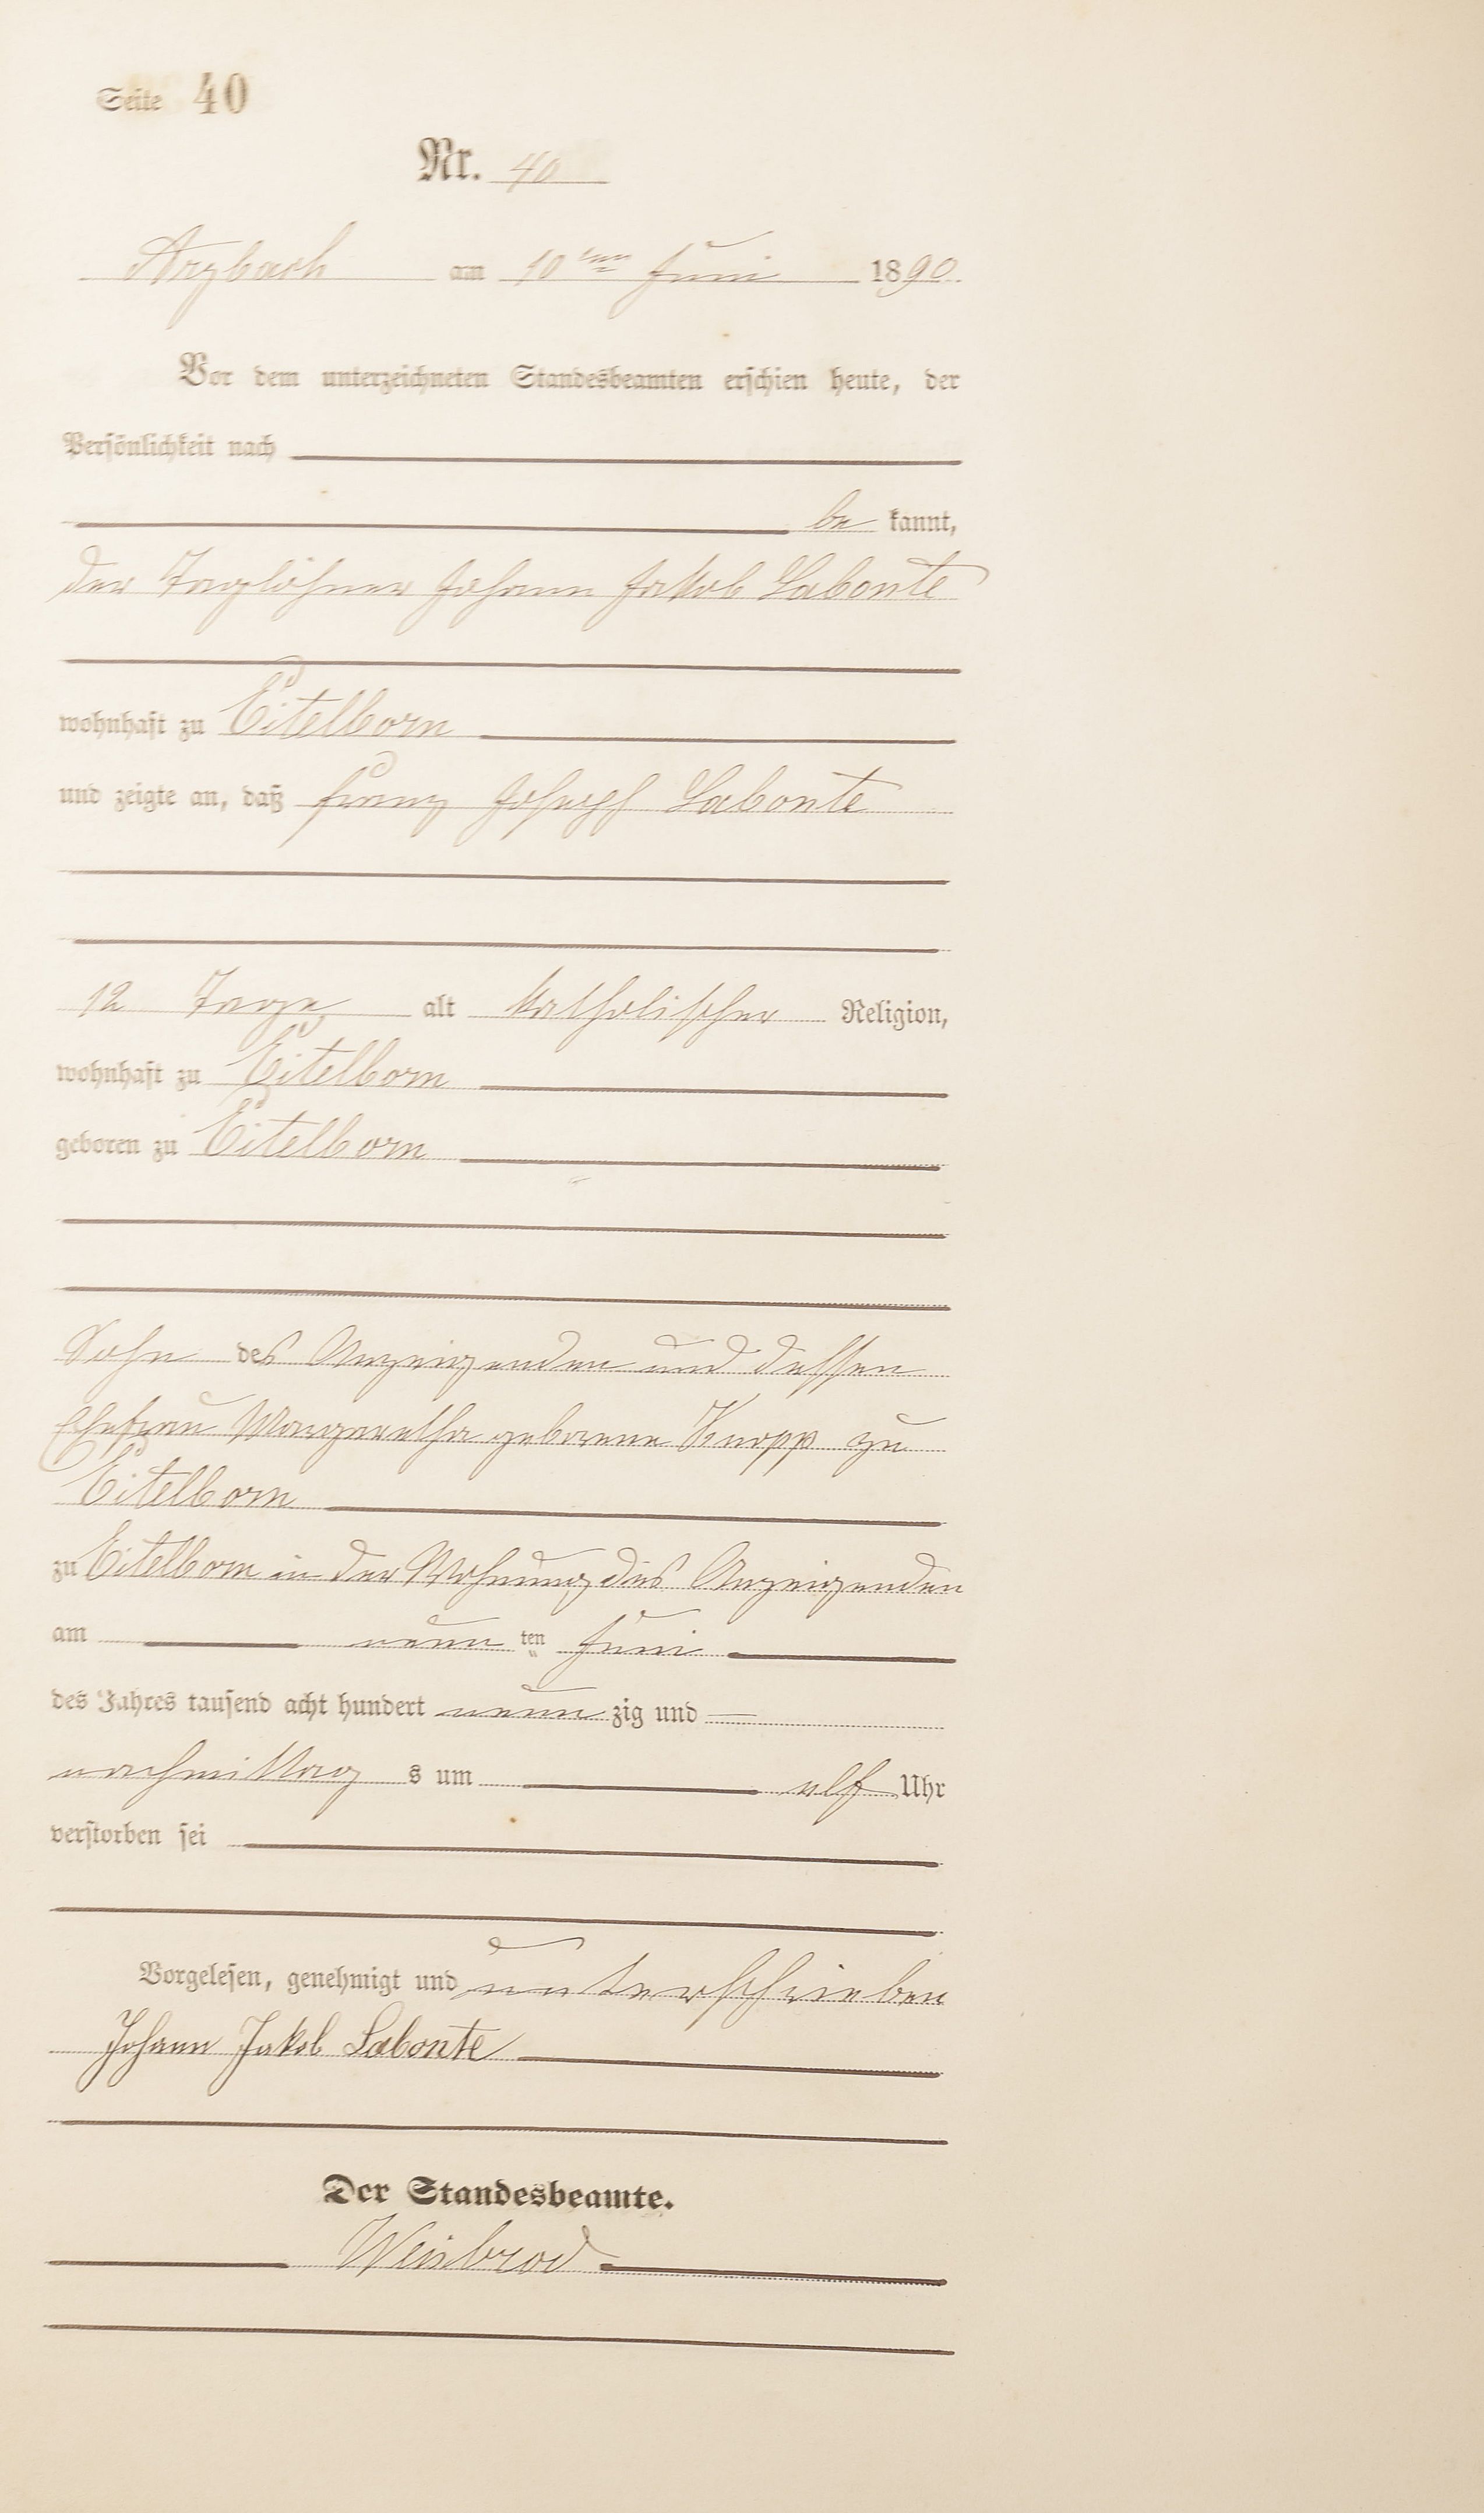 Seite 40
Nr. 40
Arzbach am 10ten Juni 1890.
Vor dem unterzeichneten Standesbeamten erschien heute, der
Persönlichkeit nach
be kannt,
der Taglöhner Johann Jakob Labonte
wohnhaft zu Eitelborn
und zeigte an, daß Franz Joseph Labonte
12 Tage alt katholischer Religion,
wohnhaft zu Eitelborn
geboren zu Eitelborn
Sohn des Anzeigenden und dessen
Ehefrau Margaretha geborene Knopp zu
Eitelborn
zu Eitelborn in der Wohnung des Anzeigenden
am neun ten Juni
des Jahres tausend acht hundert neun zig und
nachmittag s um elf Uhr
verstorben sei
Vorgelesen, genehmigt und unterschrieben
Johann Jakob Labonte
Der Standesbeamte.
Weisbrod